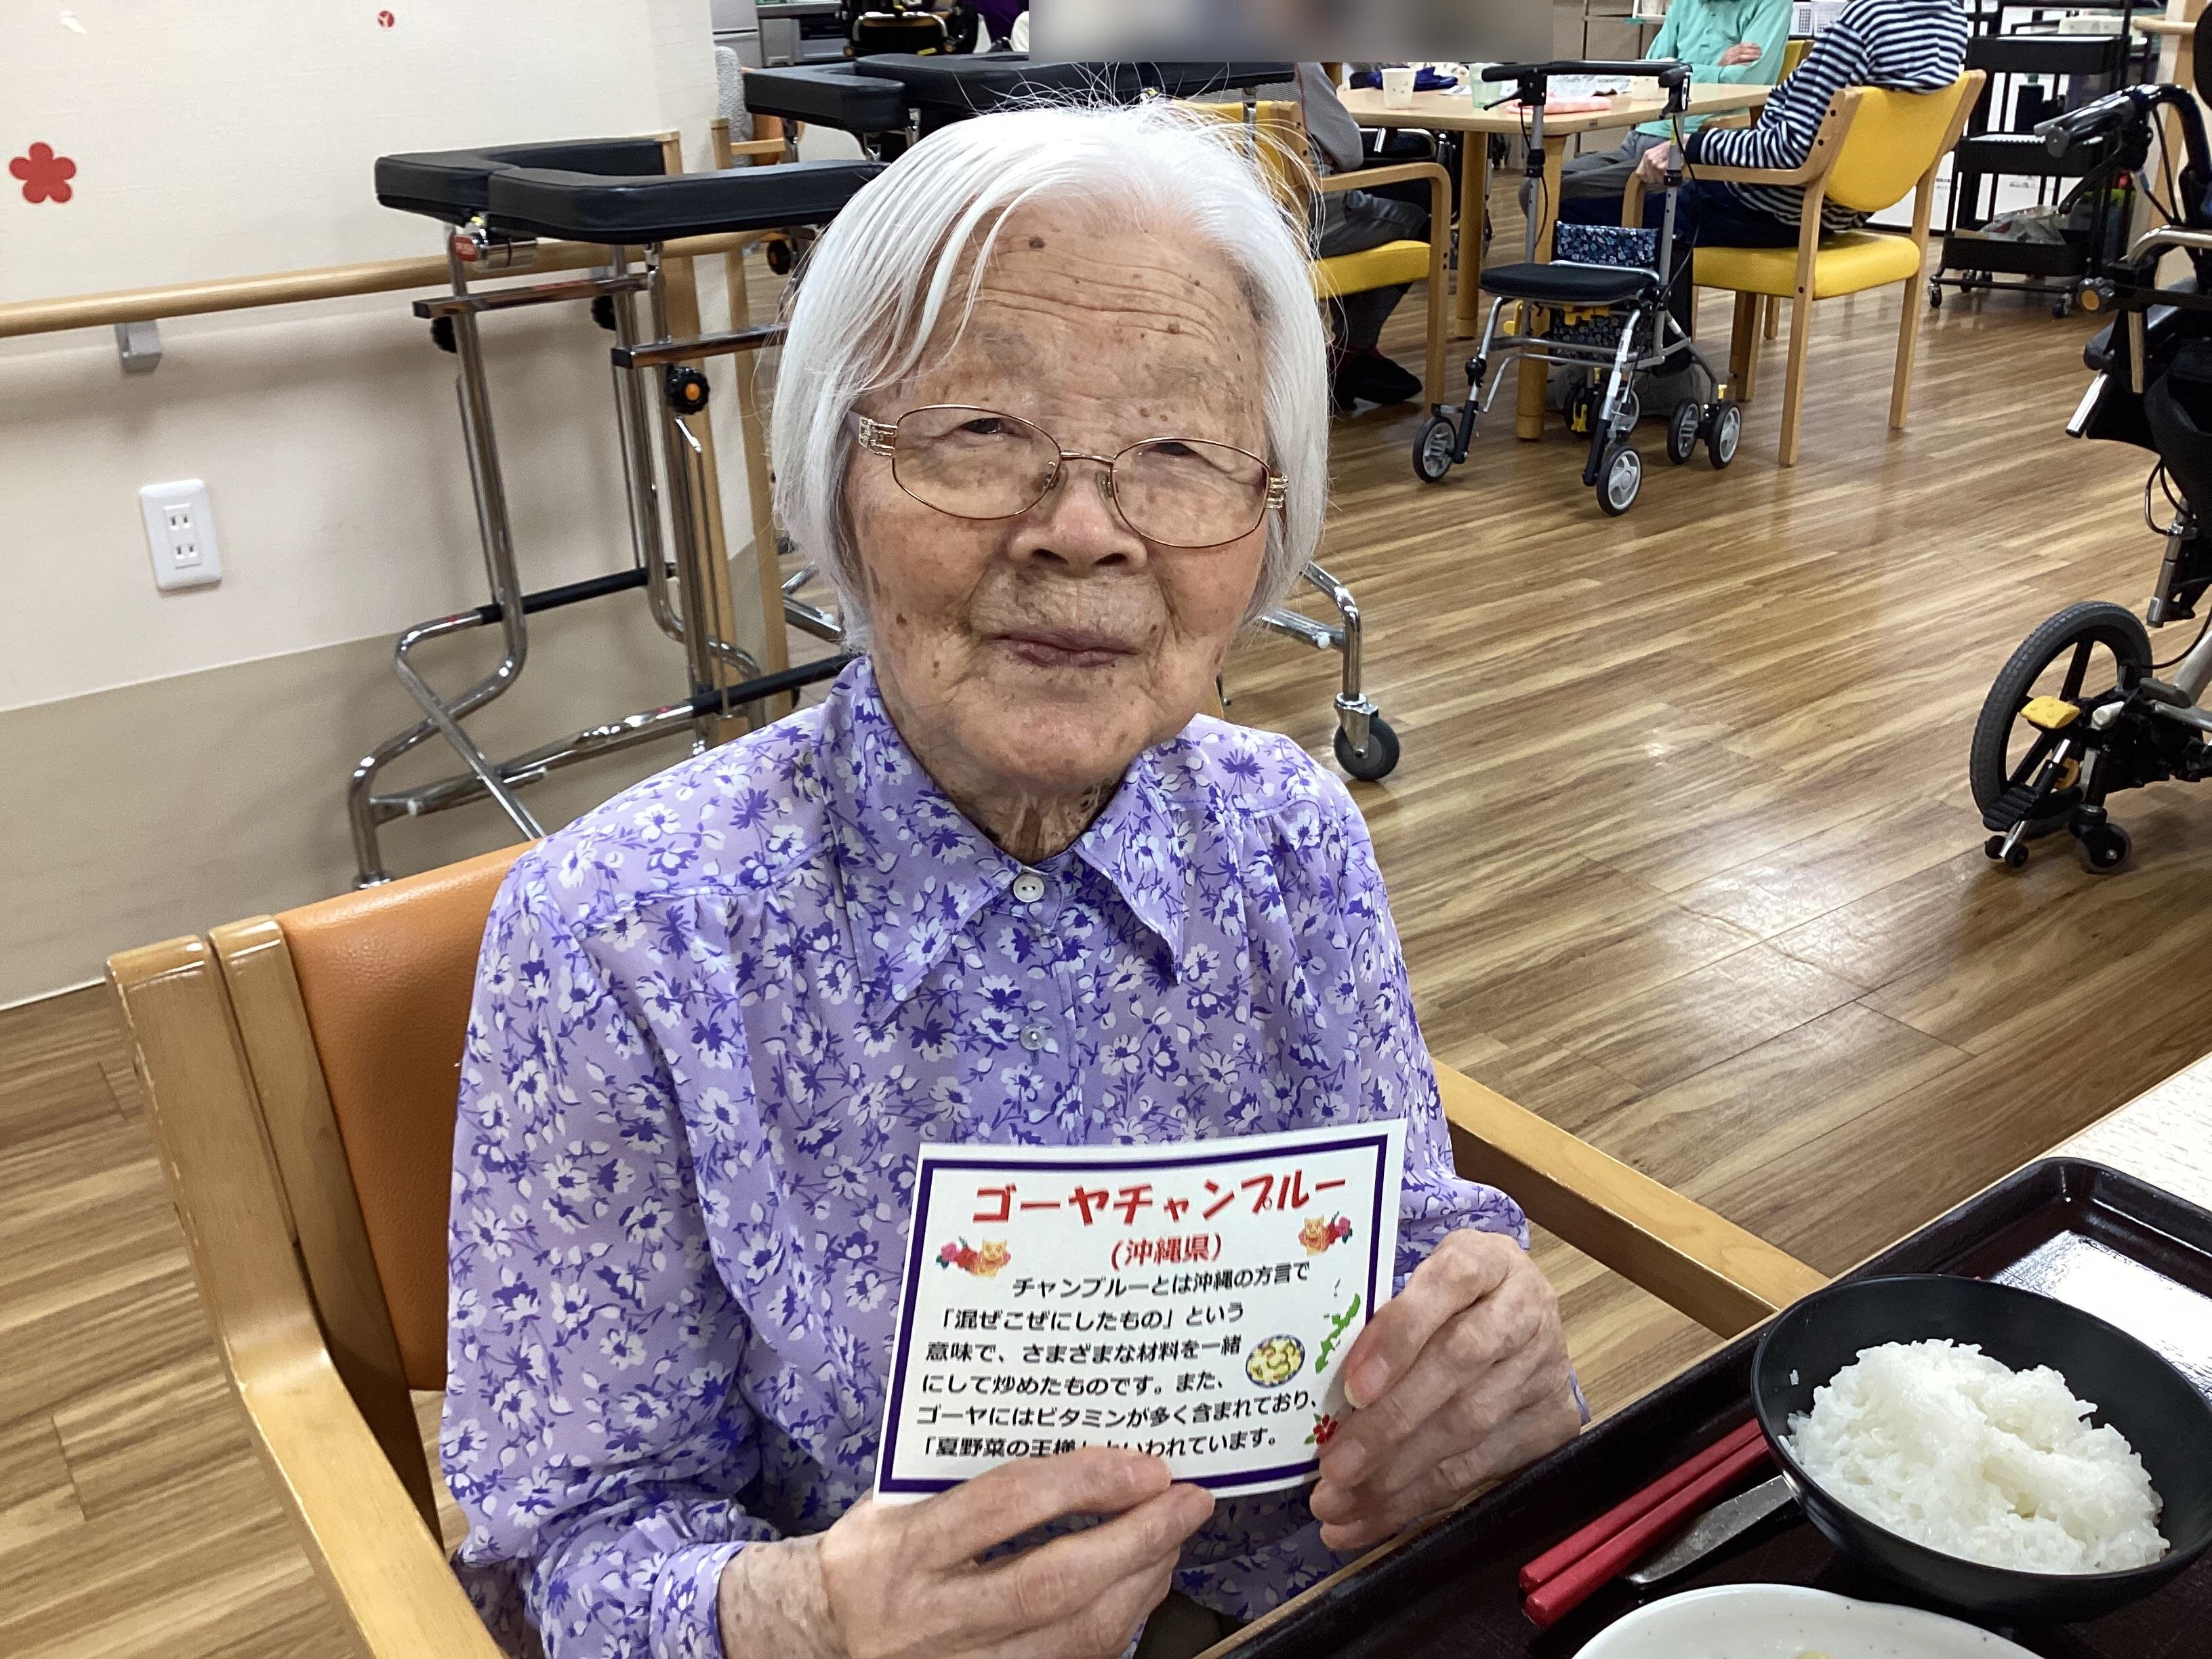 ゴーヤチャンプルー
(沖縄県)
チャンプルーとは沖縄の方言で
「混ぜこぜにしたもの」という
意味で、さまざまな材料を一緒
にして炒めたものです。また、
ゴーヤにはビタミンが多く含まれており、
「夏野菜の王様」といわれています。